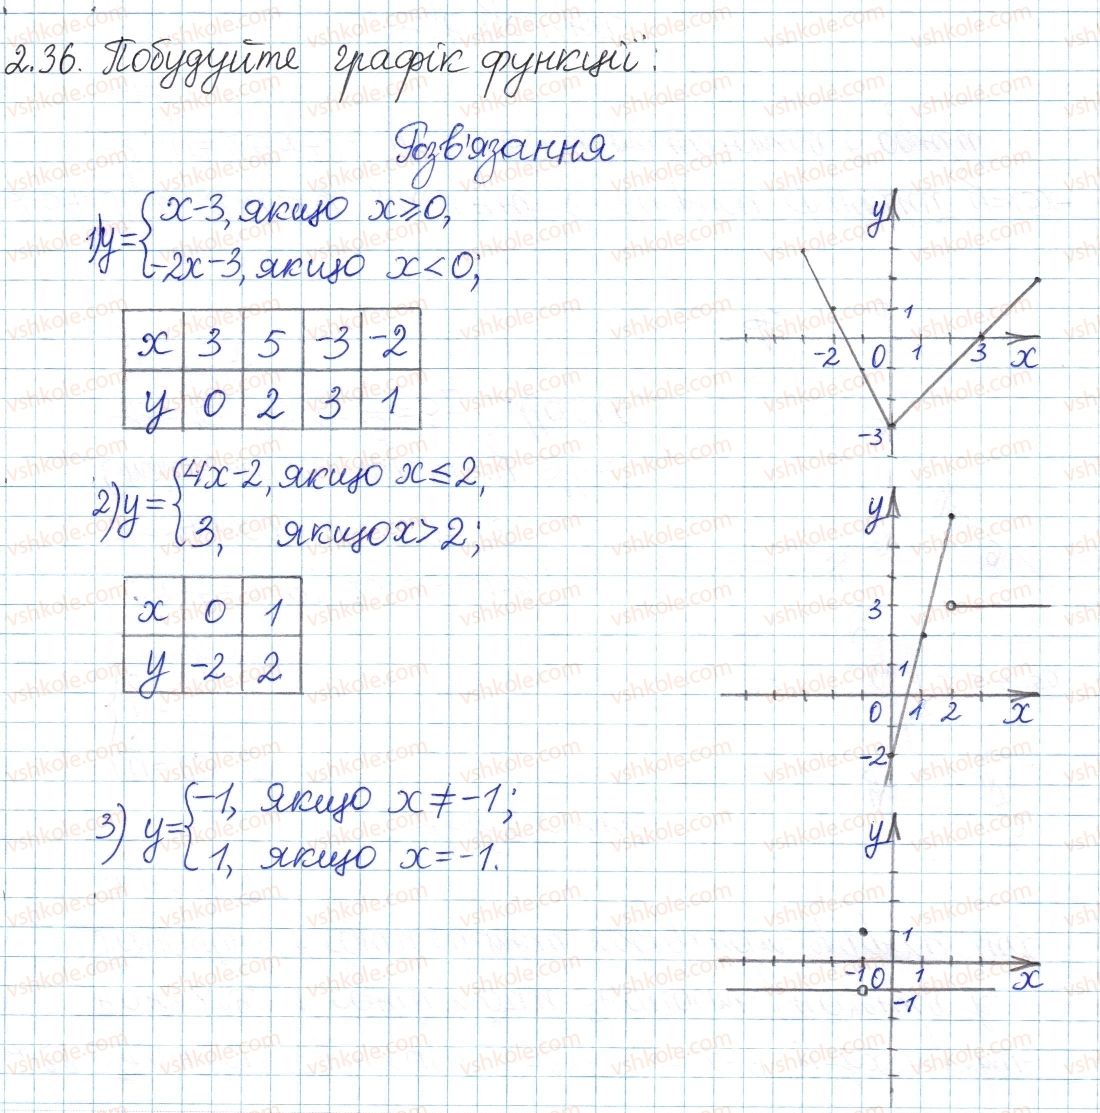 2.36. Побудуйте графік функції:
Розв'язання
1) y = { x-3, якщо x ≥ 0,
-2x-3, якщо x < 0;
x 3 5 -3 -2
y 0 2 3 1
y
1
-2 0 1 3 x
-3
2) y = { 4x-2, якщо x ≤ 2,
3, якщо x > 2;
x 0 1
y -2 2
y
3
1
0 1 2 x
-2
3) y = { -1, якщо x ≠ -1;
1, якщо x = -1.
y
1
-1 0 1 x
-1
vshkole.com